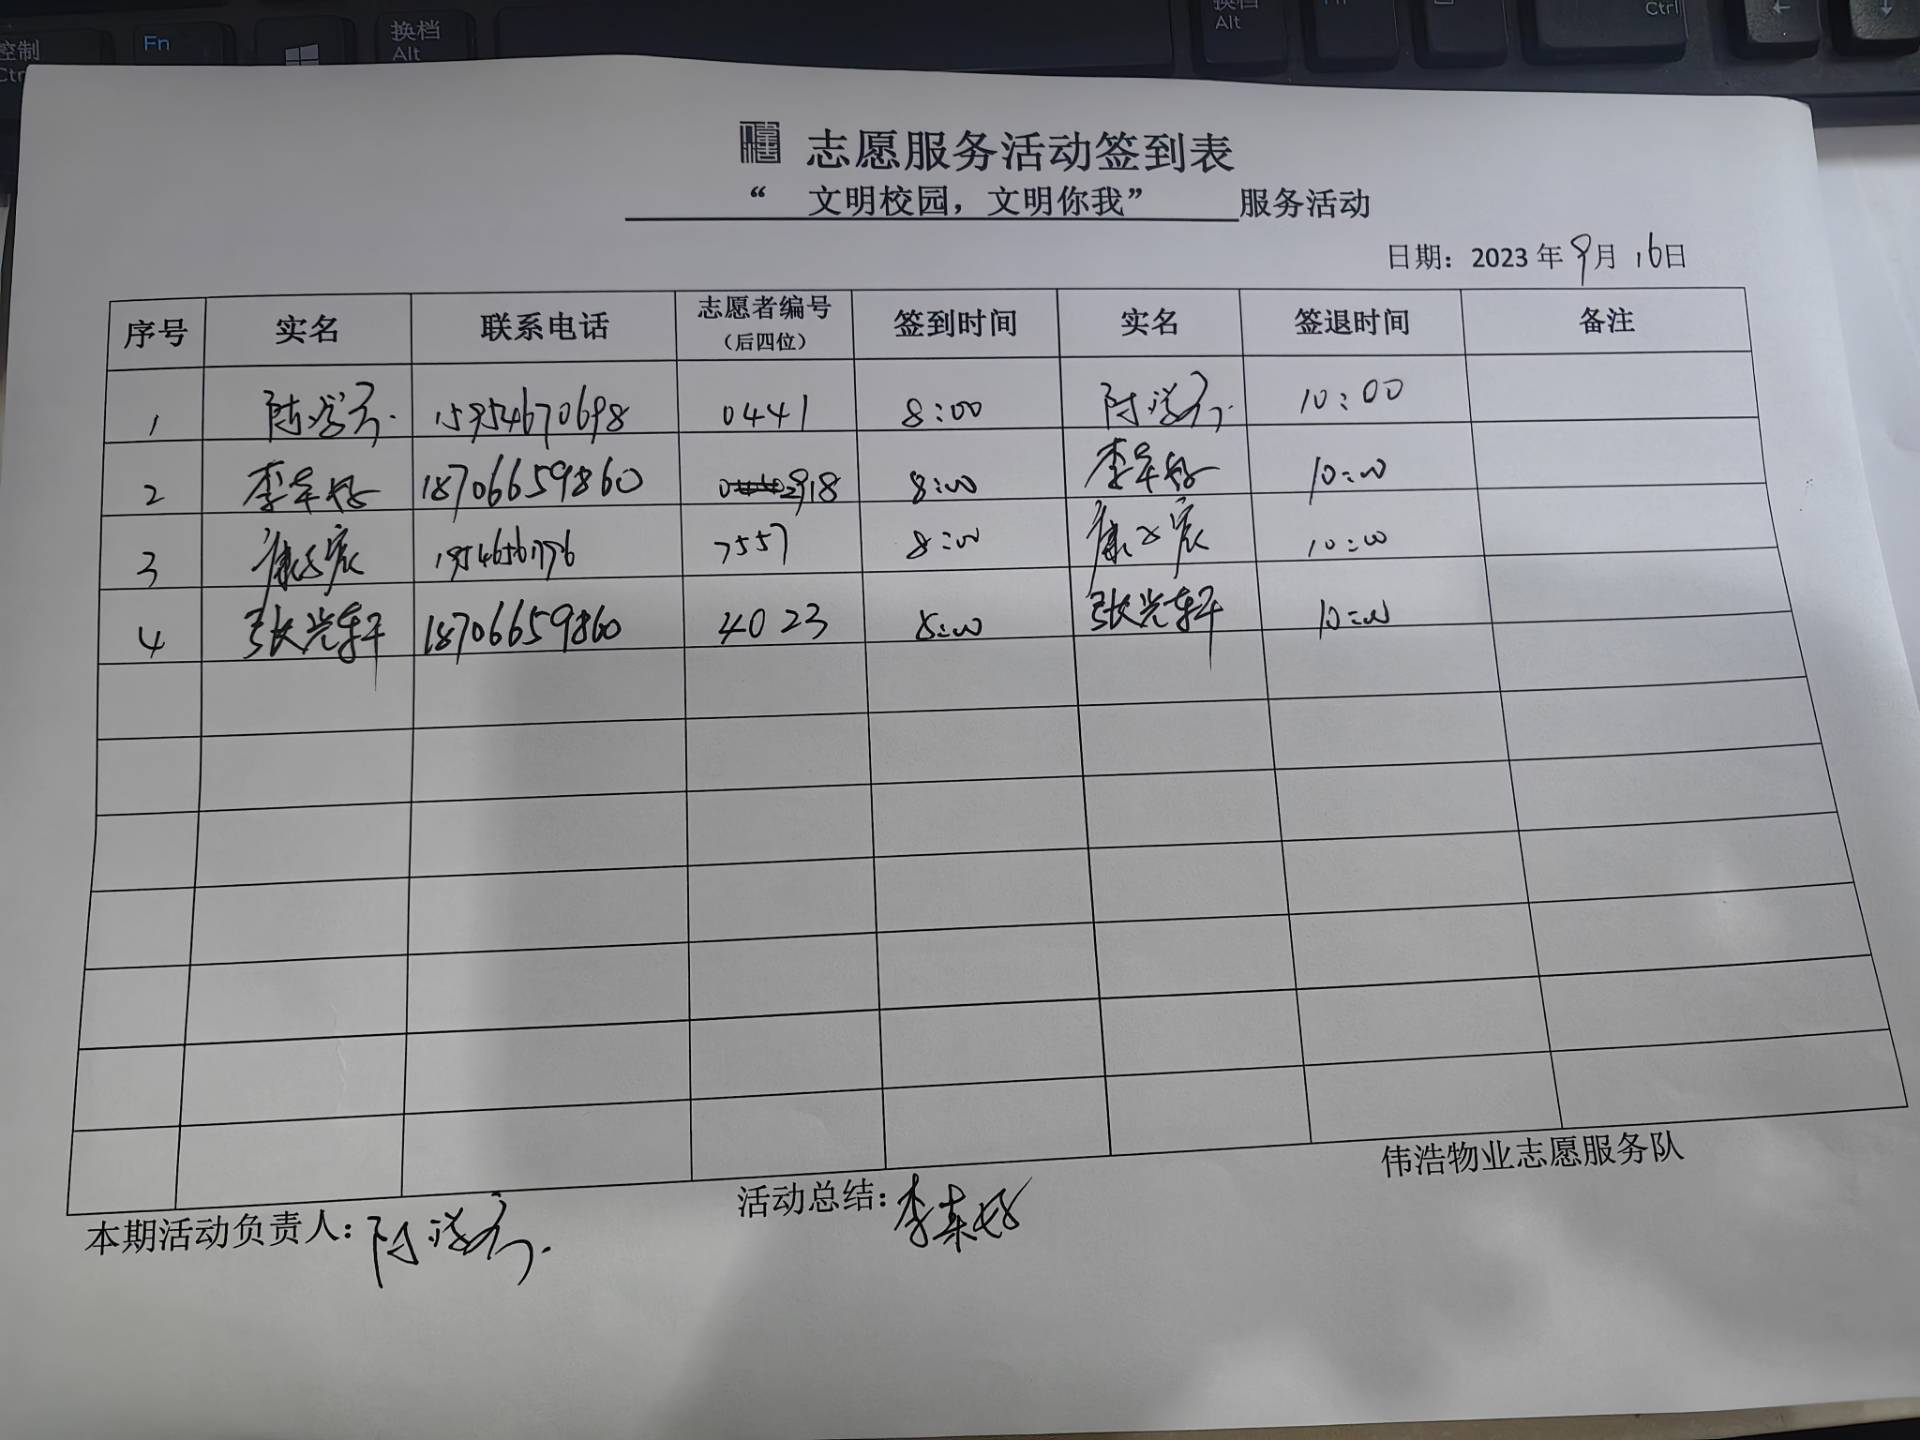 控制
Ctrl
Fn
换档
Alt
换档
Alt
Fn
Ctrl
志愿服务活动签到表
“ 文明校园，文明你我” 服务活动
日期：2023 年 9月 16日
序号 实名 联系电话 志愿者编号（后四位） 签到时间 实名 签退时间 备注
1 15954670698 0441 8:00 10:00
2 李 18706659860 2918 8:00 李 10:00
3 康 宸 7557 8:00 康 宸 10:00
4 张光轩 18706659860 4023 8:00 张光轩 10:00
伟浩物业志愿服务队
本期活动负责人：
活动总结：李